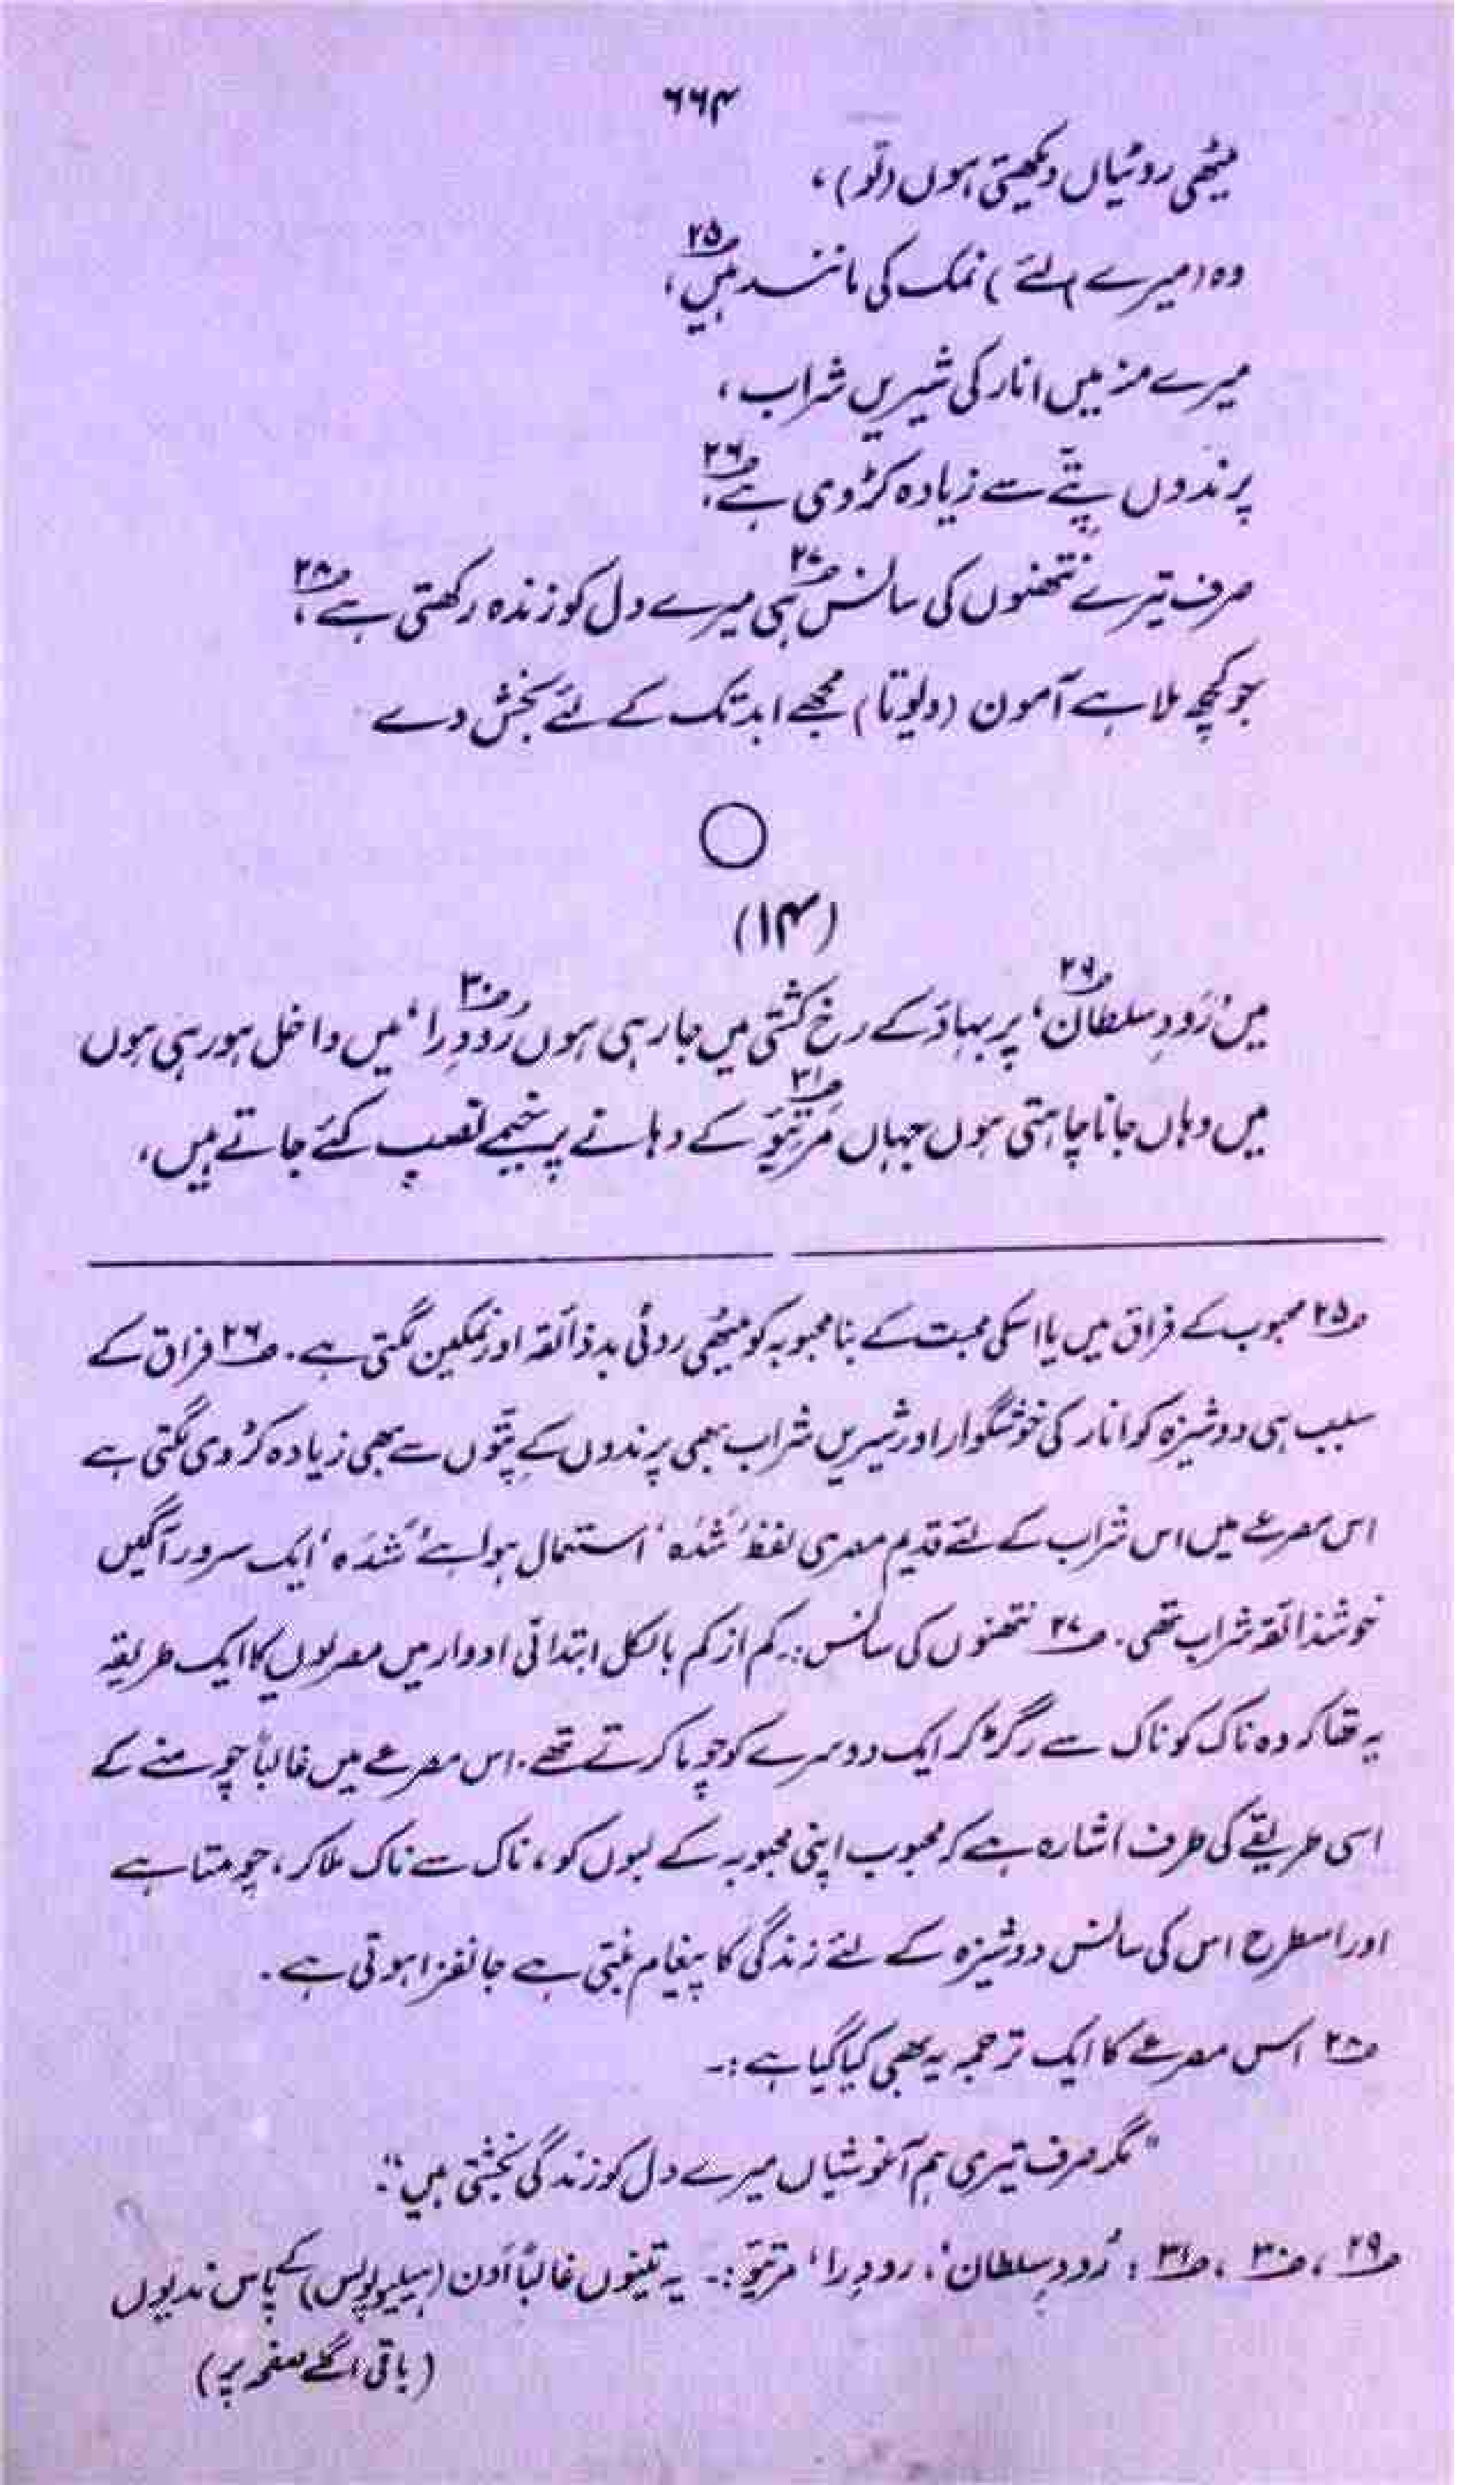 ۶۶۴
میٹھی روٹیاں دیکھتی ہوں (تو)،
وہ (میرے لئے) نمک کی مانند ہیں؀۲۵،
میرے منہ میں انار کی شیریں شراب،
پرندوں پِتّے سے زیادہ کڑوی ہے؀۲۶،
صرف تیرے نتھنوں کی سانس؀۲۷ ہی میرے دل کو زندہ رکھتی ہے؀۲۸،
جو کچھ ملا ہے آمون (دیوتا) مجھے ابد تک کے لئے بخش دے
○
(۱۴)
میں ’رُودِ سلطان‘؀۲۹ پر بہاؤ کے رخ کشتی میں جا رہی ہوں ’رُودِ را‘؀۳۰ میں داخل ہو رہی ہوں
میں وہاں جانا چاہتی ہوں جہاں مَرتیُو؀۳۱ کے دہانے پر خیمے نصب کئے جاتے ہیں،
؀۲۵ محبوب کے فراق میں یا اسکی محبت کے بنا محبوبہ کو میٹھی روٹی بدذائقہ اور نمکین لگتی ہے۔ ؀۲۶ فراق کے
سبب ہی دوشیزہ کو انار کی خوشگوار اور شیریں شراب بھی پرندوں کے پِتّوں سے بھی زیادہ کڑوی لگتی ہے
اس مصرعے میں اس شراب کے لئے قدیم مصری لفظ ’شَدَہ‘ استعمال ہوا ہے ’شَدَہ‘ ایک سرور آگیں
خوشذائقہ شراب تھی۔ ؀۲۷ نتھنوں کی سانس:۔ کم از کم بالکل ابتدائی ادوار میں مصریوں کا ایک طریقہ
یہ تھا کہ وہ ناک کو ناک سے رگڑ کر ایک دوسرے کو چوما کرتے تھے۔ اس مصرعے میں غالباً چومنے کے
اسی طریقے کی طرف اشارہ ہے کہ محبوب اپنی محبوبہ کے لبوں کو، ناک سے ناک ملا کر، چومتا ہے
اور اسطرح اس کی سانس دوشیزہ کے لئے زندگی کا پیغام بنتی ہے جانفزا ہوتی ہے۔
؀۲۸ اس مصرعے کا ایک ترجمہ یہ بھی کیا گیا ہے:۔
"مگر صرف تیری ہم آغوشیاں میرے دل کو زندگی بخشتی ہیں"۔
؀۲۹، ؀۳۰، ؀۳۱: ’رُودِ سلطان‘، رودِ را‘ مرتیُو:۔ یہ تینوں غالباً اَون (ہیلیوپولس) کے پاس ندیوں
(باقی اگلے صفحہ پر)